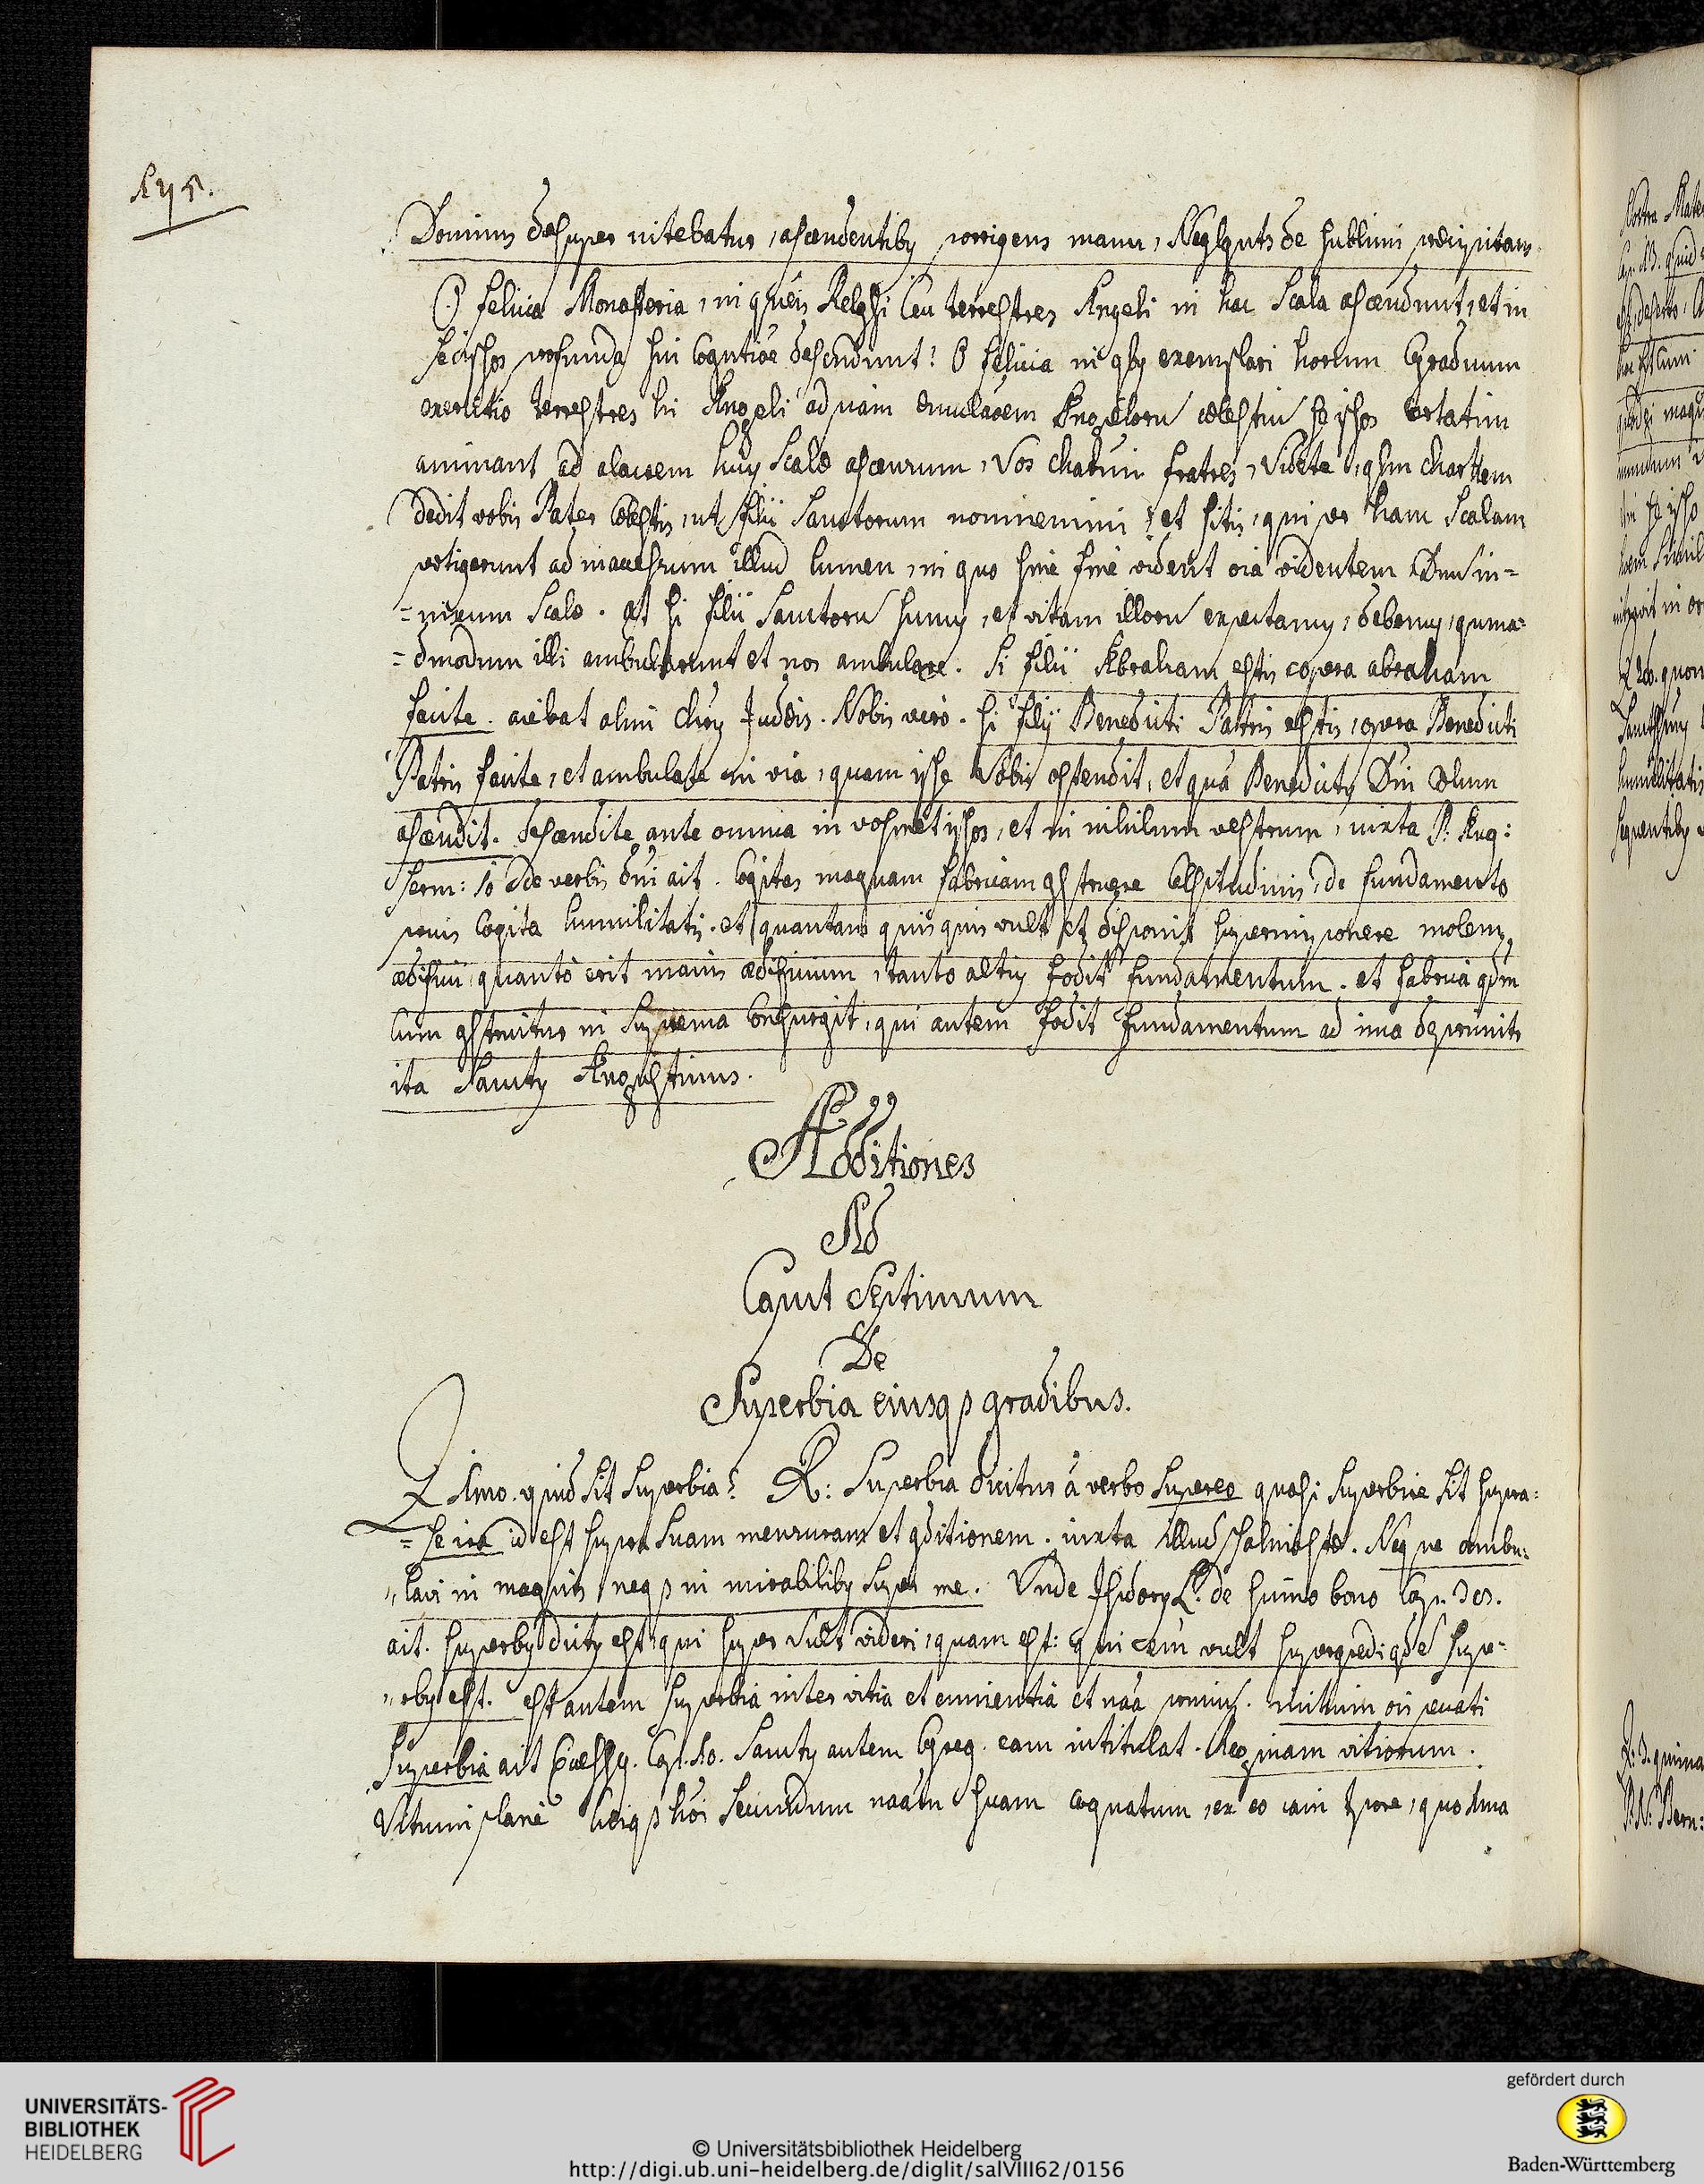 Dominus desuper nitebatur, ascendentibus porrigens manu, Neglgnts de sublimi præcipitans.
O felicia Monasteria, in queis Relgsi ceu terrestres Angeli in hac Scala ascendunt, et in
seipsos profunda sui Cognitiōe descndunt! O felicia in qbus exemplari horum Graduum
exercitio terrestres hi Angeli ad piam æmulaōem Angelorū cælestiū seipsos certatim
animant ad alacrem hujus Scalæ ascensum, Vos charīmi fratres, Videte, qlem chartem
dedit vobis Pater Cœlestis, ut filii Sanctorum nominemini et sitis, qui per hanc Scalam
pertigerunt ad inaccessum illud lumen, in quo sine fine vident oīa videntem Dnū in=
=nixum Scalæ. At si filii Sanctorū sumus, et vitam illorū expectamus, debemus, quema=
=dmodum illi ambularunt et nos ambulare. Si filii Abraham estis opera abraham
facite. aiebat olim Chrus Judæis. Nobis verò. si filij Benedicti Patris estis, opera Benedicti
Patris facite, et ambulate in via, quam ipse Vobis ostendit, et quâ Benedictus Dni Cælum
ascendit. Descendite ante omnia in vosmetipsos, et in nihilum vestrum, iuxta P: Aug:
Serm: 10 de verbis Dni ait. Cogitas magnam fabricam qstruere Celsitudinis, de fundamento
prius Cogita humilitatis. et quantam quisquis vult et disponit superimponere molem,
ædificii, quantò erit maius ædificium, tanto altius fodit fundamentum. et fabrica qdm
cum qstruitur in Suprema Consurgit, qui autem fodit fundamentum ad ima deprimit
ita Sanctus Augustinus.
Additiones
Ad
Caput Septimum
De
Superbia eiusq; gradibus.
Q 1mo. quid sit Superbia? R: Superbia dicitur à verbo Supereo quasi Superbire sit supra=
=se ire id est supra suam mensuram et qditionem. iuxta illud psalmistæ. Neque ambu=
=lavi in magnis neq; in mirabilibus super me. Unde Isidorus L. de summo bono Cap. 38.
ait. superbus dictus est, qui super vult videri, quam est: qui enim vult supergredi qd ē supe=
=rbus est. est autem superbia inter vitia et eminentia et nāa primus. initium oīs peccati
Superbia ait Eccssus. Cap. 10. Sanctus autem Greg. eam intitulat. Reginam vitiorum.
Vitium planè cuiq; hoī Secundum naām suam cognatum, ex eo iam tpore, quo 1ma
UNIVERSITÄTS-
BIBLIOTHEK
HEIDELBERG
© Universitätsbibliothek Heidelberg
http://digi.ub.uni-heidelberg.de/diglit/salVIII62/0156
gefördert durch
Baden-Württemberg